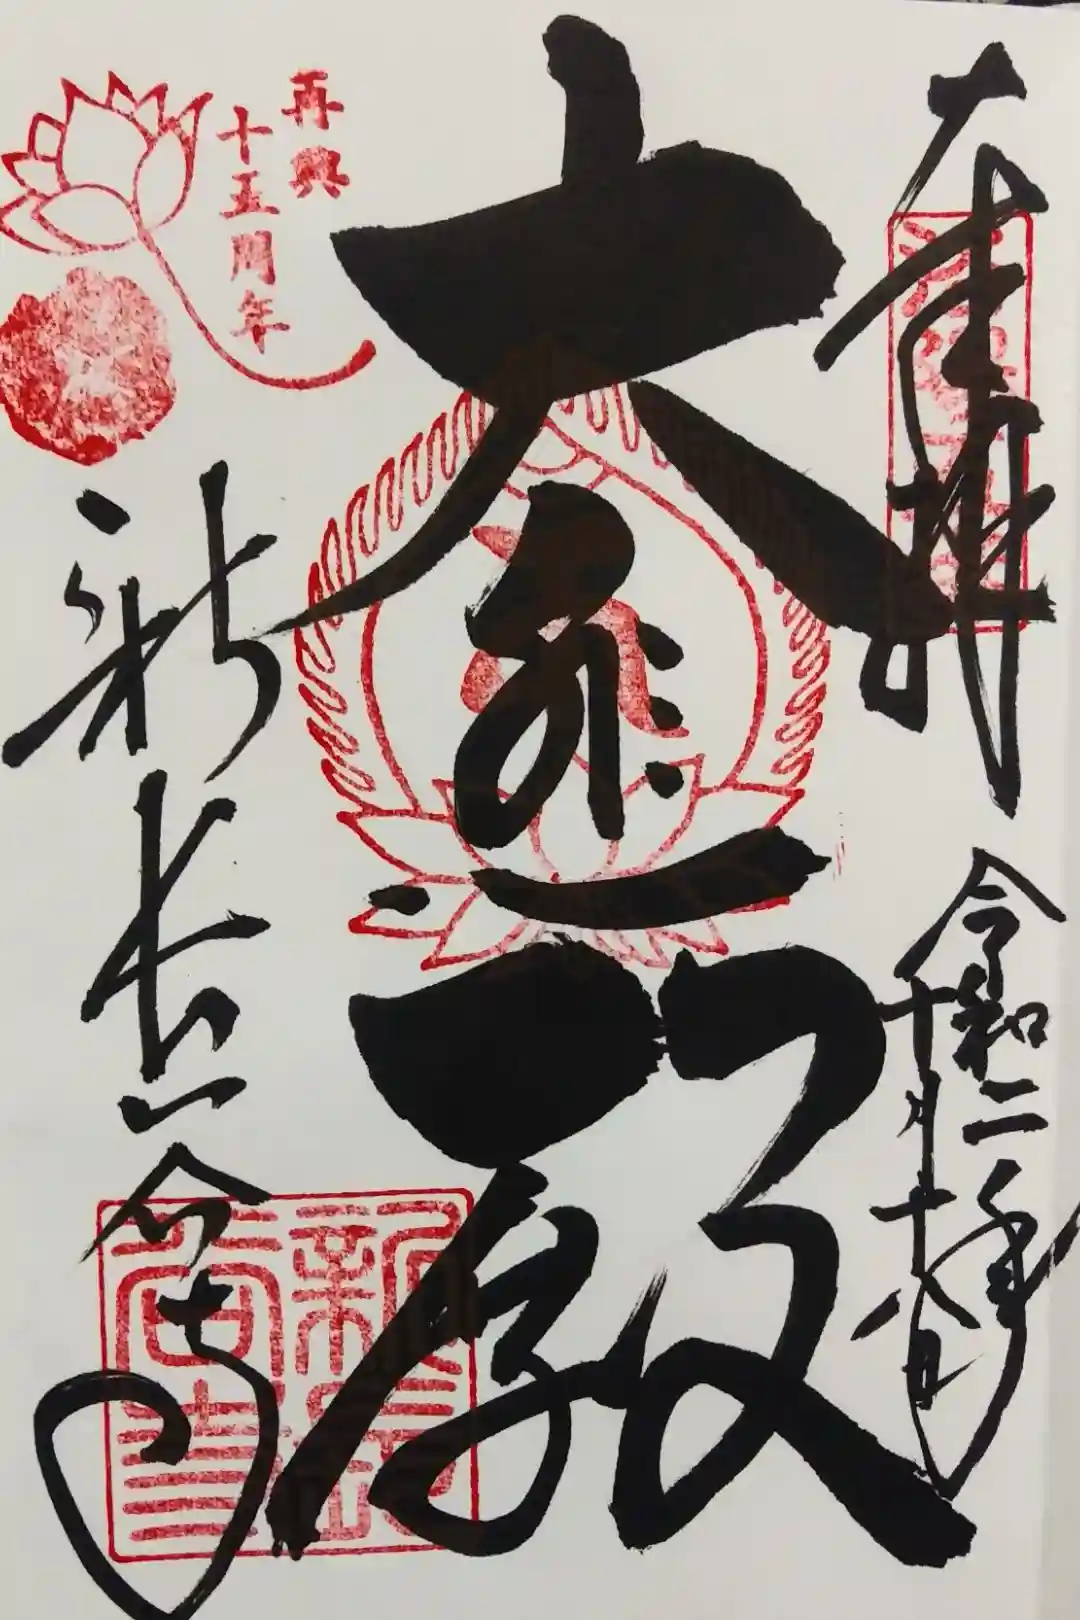 奉拝
令和二年
十月十八日
大悲殿
新長谷寺
再興
十五周年